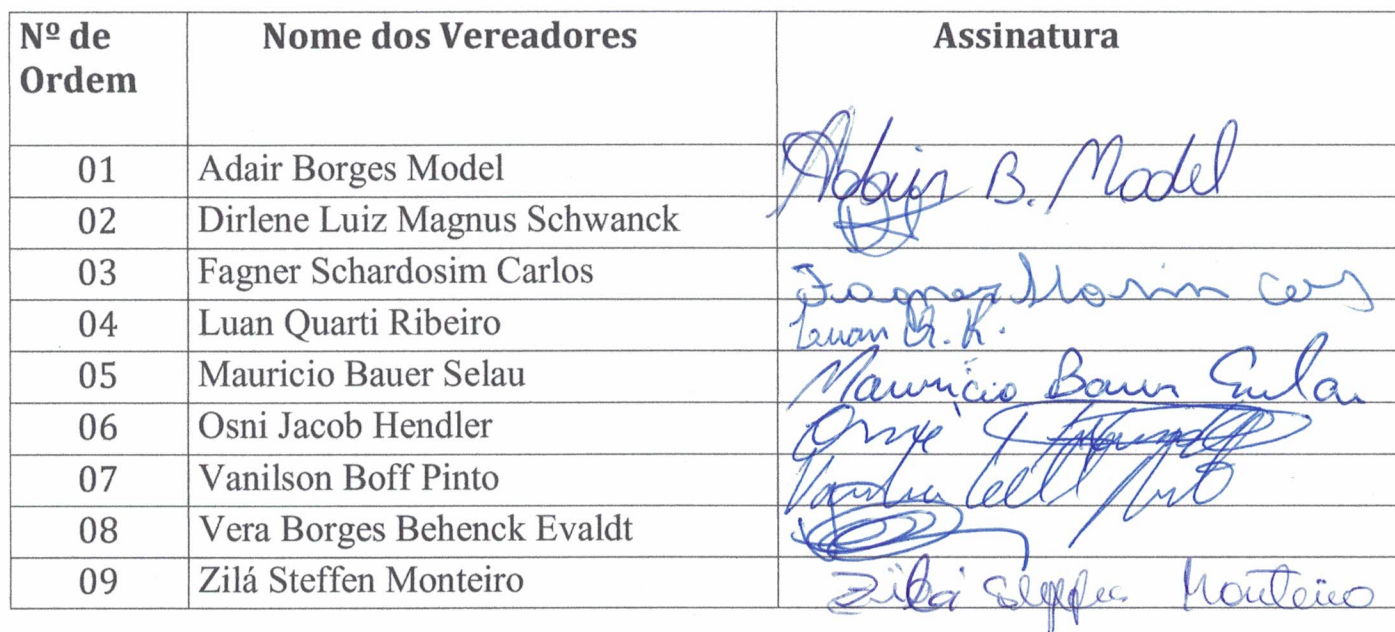 Nº de Ordem Nome dos Vereadores Assinatura
01 Adair Borges Model Adair B. Model
02 Dirlene Luiz Magnus Schwanck
03 Fagner Schardosim Carlos Fagner
04 Luan Quarti Ribeiro Luan Q. R.
05 Mauricio Bauer Selau Mauricio Bauer Selau
06 Osni Jacob Hendler
07 Vanilson Boff Pinto
08 Vera Borges Behenck Evaldt
09 Zilá Steffen Monteiro Zilá Steffen Monteiro